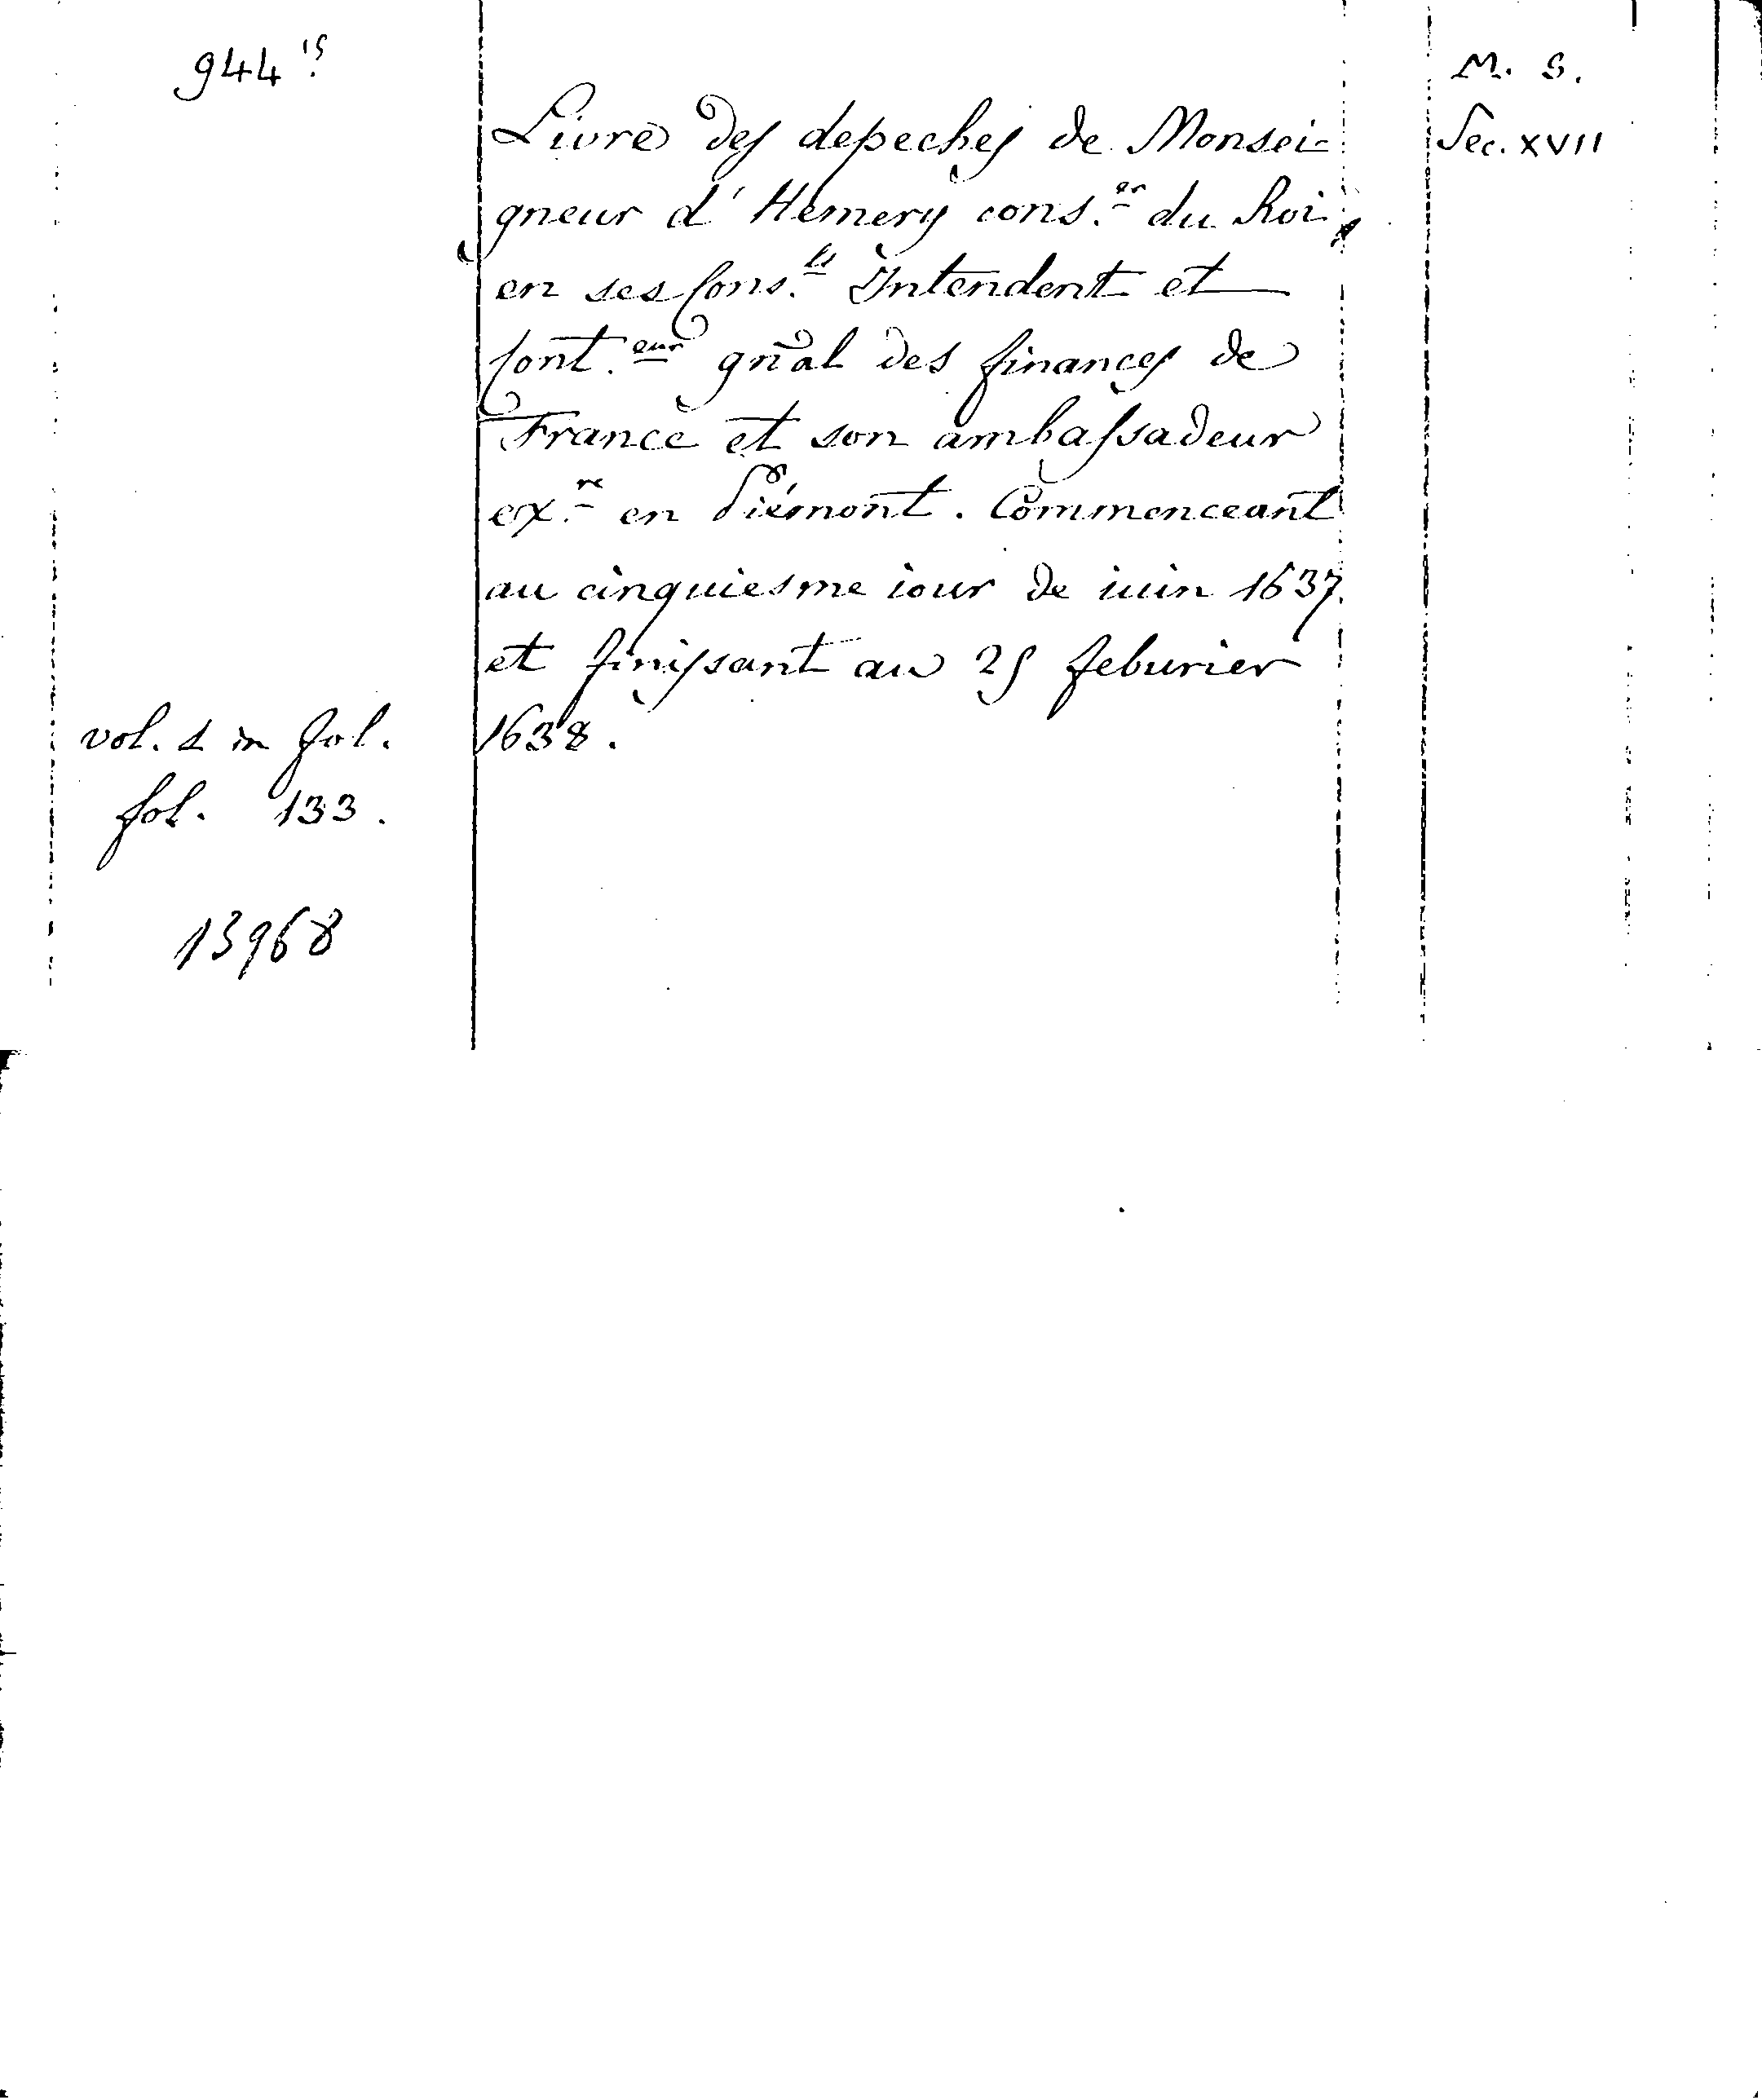 944 15.
M. S.
Sec. XVII
Livre des depeches de Monsei-
gneur d'Hemery cons.er du Roi,
en ses Cons.ls Intendent et
Cont.eur gñal des finances de
France et son ambassadeur
ex.re en Piémont. Commenceant
au cinquiesme iour de iuin 1637.
et finissant au 25 feburier
1638.
vol. 1 in fol.
fol. 133.
13968